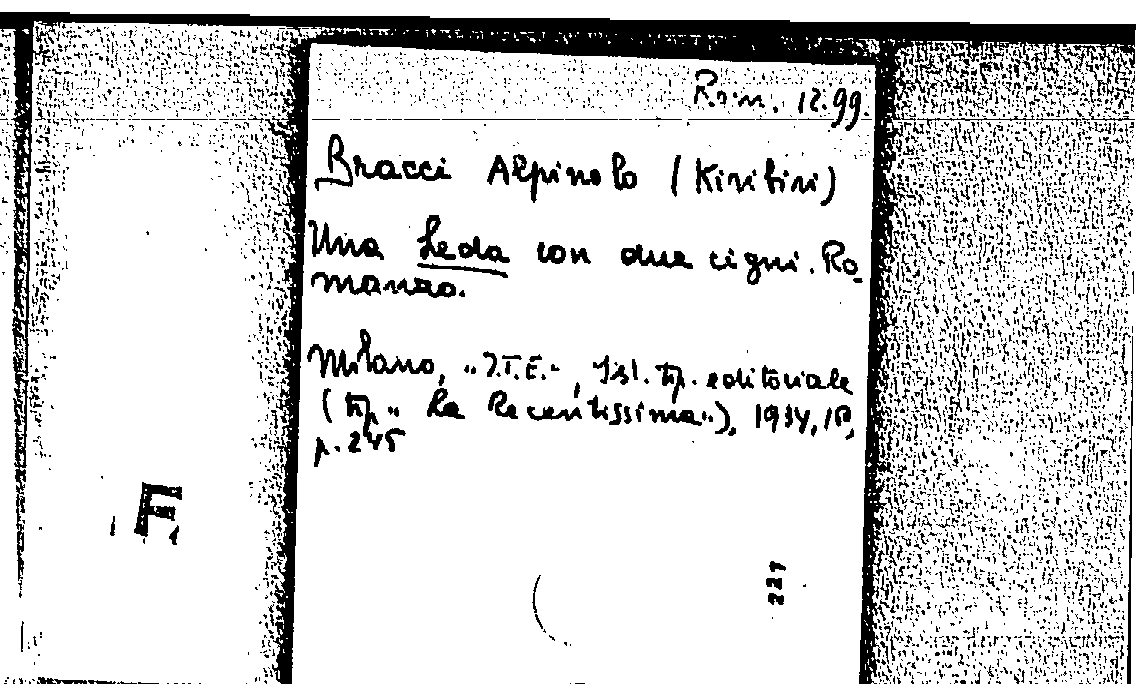 Rom. 12.99.
Bracci Alpinolo (Kiribiri)
Una Leda con due cigni. Ro
manzo.
Milano, "I.T.E.", Ist. tip. editoriale
(tip. "La Recentissima"), 1934, 18,
p. 245
F.
227